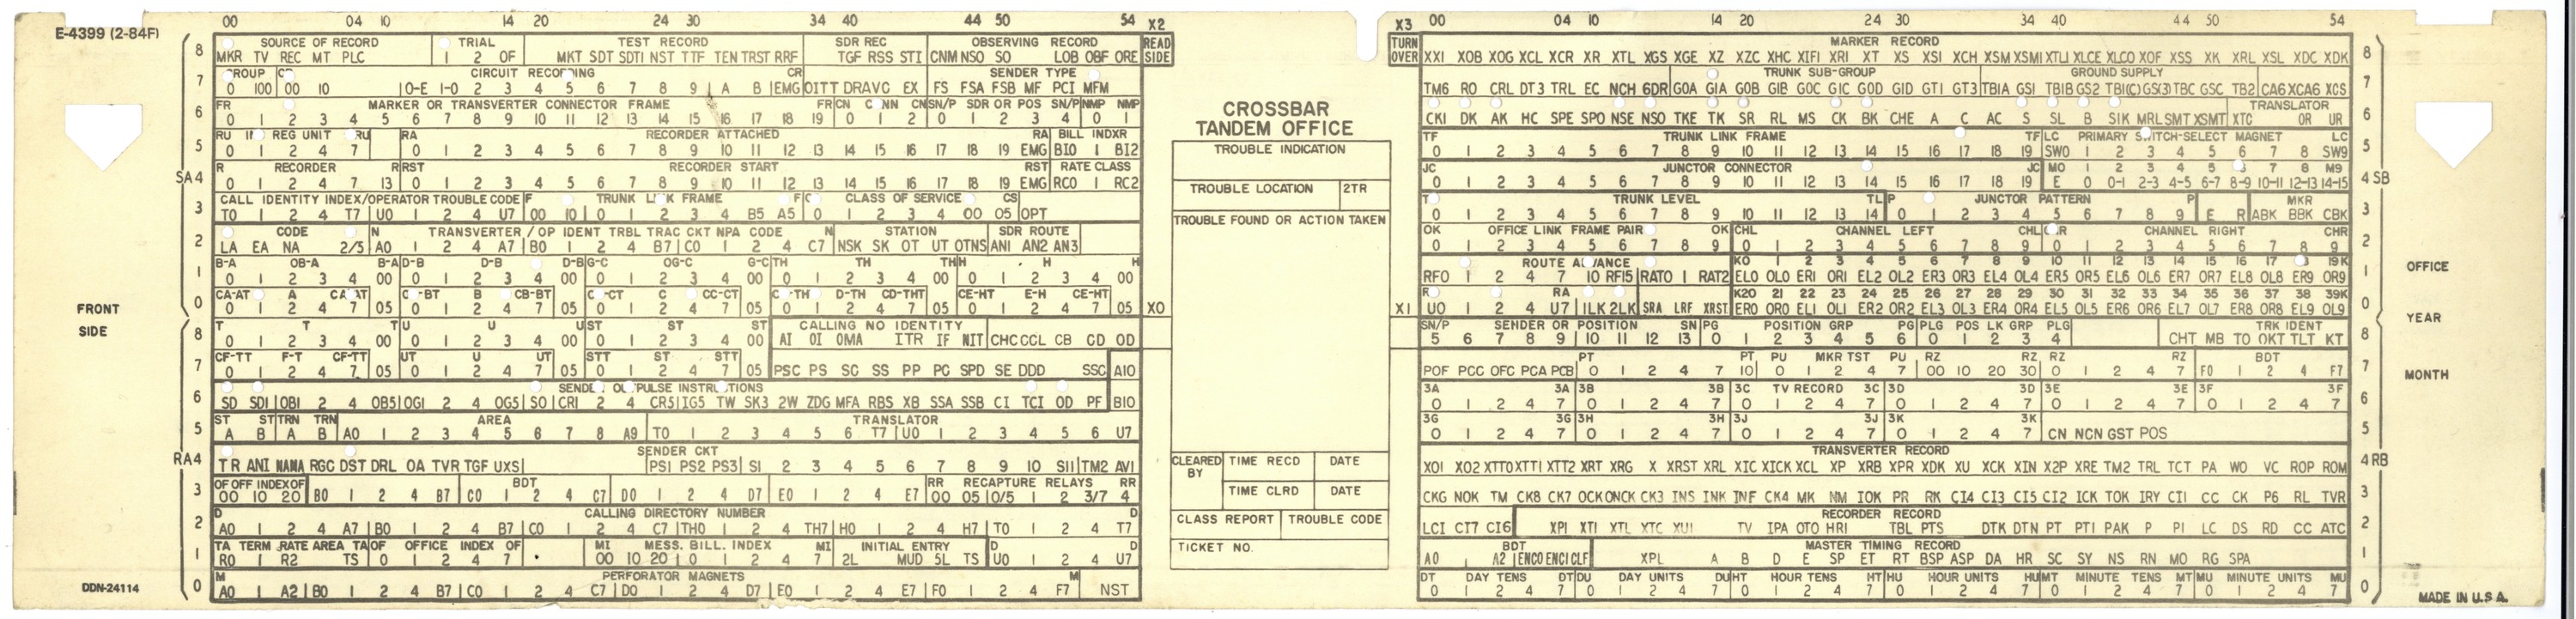 00 04 10 14 20 24 30 34 40 44 50 54 X2
E-4399 (2-84F)
8 SOURCE OF RECORD TRIAL TEST RECORD SDR REC OBSERVING RECORD READ SIDE
MKR TV REC MT PLC 1 2 OF MKT SDT SDTI NST TTF TEN TRST RRF TGF RSS STI CNM NSO SO LOB OBF ORE
7 CIRCUIT RECORDING CR SENDER TYPE
0 100 00 10 0-E 1-0 2 3 4 5 6 7 8 9 A B EMG OITT DRAVC EX FS FSA FSB MF PCI MFM
6 FR MARKER OR TRANSVERTER CONNECTOR FRAME FR CN CN SN/P SDR OR POS SN/P NMP NMP
0 1 2 3 4 5 6 7 8 9 10 11 12 13 14 15 16 17 18 19 0 1 2 0 1 2 3 4 0 1
5 RU REG UNIT RU RA RECORDER ATTACHED RA BILL INDXR
0 1 2 4 7 0 1 2 3 4 5 6 7 8 9 10 11 12 13 14 15 16 17 18 19 EMG BI0 1 BI2
SA 4 R RECORDER R RST RECORDER START RST RATE CLASS
0 1 2 4 7 13 0 1 2 3 4 5 6 7 8 9 10 11 12 13 14 15 16 17 18 19 EMG RC0 1 RC2
3 CALL IDENTITY INDEX/OPERATOR TROUBLE CODE F TRUNK FRAME F CLASS OF SERVICE CS
T0 1 2 4 T7 U0 1 2 4 U7 00 10 0 1 2 3 4 B5 A5 0 1 2 3 4 00 05 OPT
2 CODE N TRANSVERTER / OP IDENT TRBL TRAC CKT NPA CODE N STATION SDR ROUTE
LA EA NA 2/5 A0 1 2 4 A7 B0 1 2 4 B7 C0 1 2 4 C7 NSK SK OT UT OTNS ANI AN2 AN3
1 B-A OB-A B-A D-B D-B D-B G-C OG-C G-C TH TH TH H H H
0 1 2 3 4 00 0 1 2 3 4 00 0 1 2 3 4 00 0 1 2 3 4 00 0 1 2 3 4 00
0 CA-AT A B CB-BT C CC-CT D-TH CD-THT CE-HT E-H CE-HT X0
0 1 2 4 7 05 0 1 2 4 7 05 0 1 2 4 7 05 0 1 2 4 7 05 0 1 2 4 7 05
FRONT SIDE
8 T T T U U U ST ST ST CALLING NO IDENTITY
0 1 2 3 4 00 0 1 2 3 4 00 0 1 2 3 4 00 AI OI OMA ITR IF NIT CHC CCL CB CD OD
7 CF-TT F-T CF-TT UT U UT STT ST STT
0 1 2 4 7 05 0 1 2 4 7 05 0 1 2 4 7 05 PSC PS SC SS PP PG SPD SE DDD SSC A10
6 INSTRUCTIONS
SD SDI OBI 2 4 OB5 OGI 2 4 OG5 SO CRI 2 4 CR5 IG5 TW SK3 2W ZDG MFA RBS XB SSA SSB CI TCI OD PF B10
5 ST ST TRN TRN AREA TRANSLATOR
A B A B A0 1 2 3 4 5 6 7 8 A9 T0 1 2 3 4 5 6 T7 U0 1 2 3 4 5 6 U7
RA 4 SENDER CKT
TR ANI NANA RGC DST DRL OA TVR TGF UXS PS1 PS2 PS3 S1 2 3 4 5 6 7 8 9 10 S11 TM2 AVI
3 OF OFF INDEX OF BDT RR RECAPTURE RELAYS RR
00 10 20 B0 1 2 4 B7 C0 1 2 4 C7 D0 1 2 4 D7 E0 1 2 4 E7 00 05 0/5 1 2 3/7 4
2 D CALLING DIRECTORY NUMBER D
A0 1 2 4 A7 B0 1 2 4 B7 C0 1 2 4 C7 TH0 1 2 4 TH7 H0 1 2 4 H7 T0 1 2 4 T7
1 TA TERM RATE AREA TA OF OFFICE INDEX OF MI MESS. BILL. INDEX MI INITIAL ENTRY D D
R0 1 R2 TS 0 1 2 4 7 00 10 20 0 1 2 4 7 2L MUD 5L TS U0 1 2 4 U7
0 M PERFORATOR MAGNETS M
A0 1 A2 B0 1 2 4 B7 C0 1 2 4 C7 D0 1 2 4 D7 E0 1 2 4 E7 F0 1 2 4 F7 NST
DDN-24114
CROSSBAR
TANDEM OFFICE
TROUBLE INDICATION
TROUBLE LOCATION 2TR
TROUBLE FOUND OR ACTION TAKEN
CLEARED BY TIME RECD DATE
TIME CLRD DATE
CLASS REPORT TROUBLE CODE
TICKET NO.
X3 00 04 10 14 20 24 30 34 40 44 50 54
TURN OVER MARKER RECORD 8
XXI XOB XOG XCL XCR XR XTL XGS XGE XZ XZC XHC XIFI XRI XT XS XSI XCH XSM XSMI XTLI XLCE XLCO XOF XSS XK XRL XSL XDC XDK
TRUNK SUB-GROUP GROUND SUPPLY 7
TM6 RO CRL DT3 TRL EC NCH 6DR GOA GIA GOB GIB GOC GIC GOD GID GTI GT3 TBIA GSI TBIB GS2 TBI(C) GS(3) TBC GSC TB2 CA6 XCA6 XCS
TRANSLATOR 6
CKI DK AK HC SPE SPO NSE NSO TKE TK SR RL MS CK BK CHE A C AC S SL B SIK MRL SMT XSMT XTC OR UR
TF TRUNK LINK FRAME TF LC PRIMARY SWITCH-SELECT MAGNET LC 5
0 1 2 3 4 5 6 7 8 9 10 11 12 13 14 15 16 17 18 19 SW0 1 2 3 4 5 6 7 8 SW9
JC JUNCTOR CONNECTOR JC M0 1 2 3 4 5 6 7 8 M9 4 SB
0 1 2 3 4 5 6 7 8 9 10 11 12 13 14 15 16 17 18 19 E 0 0-1 2-3 4-5 6-7 8-9 10-11 12-13 14-15
TRUNK LEVEL TL P JUNCTOR PATTERN P MKR 3
0 1 2 3 4 5 6 7 8 9 10 11 12 13 14 0 1 2 3 4 5 6 7 8 9 E R ABK BBK CBK
OK OFFICE LINK FRAME PAIR OK CHL CHANNEL LEFT CHL CHANNEL RIGHT CHR 2
0 1 2 3 4 5 6 7 8 9 0 1 2 3 4 5 6 7 8 9 0 1 2 3 4 5 6 7 8 9
ROUTE ADVANCE K0 1 2 3 4 5 6 7 8 9 10 11 12 13 14 15 16 17 18 19K 1
RF0 1 2 4 7 10 RF15 RAT0 1 RAT2 EL0 OL0 ER1 OR1 EL2 OL2 ER3 OR3 EL4 OL4 ER5 OR5 EL6 OL6 ER7 OR7 EL8 OL8 ER9 OR9
X1 R RA K20 21 22 23 24 25 26 27 28 29 30 31 32 33 34 35 36 37 38 39K 0
U0 1 2 4 U7 1LK 2LK SRA LRF XRST ER0 OR0 EL1 OL1 ER2 OR2 EL3 OL3 ER4 OR4 EL5 OL5 ER6 OR6 EL7 OL7 ER8 OR8 EL9 OL9
SN/P SENDER OR POSITION SN PG POSITION GRP PG PLG POS LK GRP PLG TRK IDENT 8
5 6 7 8 9 10 11 12 13 0 1 2 3 4 5 6 0 1 2 3 4 CHT MB TO OKT TLT KT
PT PT PU MKR TST PU RZ RZ RZ RZ BDT 7
POF PCC OFC PCA PCB 0 1 2 4 7 10 0 1 2 4 7 00 10 20 30 0 1 2 4 7 F0 1 2 4 F7
3A 3A 3B 3B 3C TV RECORD 3C 3D 3D 3E 3E 3F 3F 6
0 1 2 4 7 0 1 2 4 7 0 1 2 4 7 0 1 2 4 7 0 1 2 4 7 0 1 2 4 7
3G 3G 3H 3H 3J 3J 3K 3K 5
0 1 2 4 7 0 1 2 4 7 0 1 2 4 7 0 1 2 4 7 CN NCN GST POS
TRANSVERTER RECORD 4 RB
XO1 XO2 XTTO XTT1 XTT2 XRT XRG X XRST XRL XIC XICK XCL XP XRB XPR XDK XU XCK XIN X2P XRE TM2 TRL TCT PA WO VC ROP ROM
3
CKG NOK TM CK8 CK7 OCK ONCK CK3 INS INK INF CK4 MK NM IOK PR RK CI4 CI3 CI5 CI2 ICK TOK IRY CI1 CC CK P6 RL TVR
RECORDER RECORD 2
LCI CT7 CI6 XPI XTI XTL XTC XUI TV IPA OTO HRI TBL PTS DTK DTN PT PTI PAK P PI LC DS RD CC ATC
BDT MASTER TIMING RECORD 1
A0 A2 ENCO ENCI CLF XPL A B D E SP ET RT BSP ASP DA HR SC SY NS RN MO RG SPA
DT DAY TENS DT DU DAY UNITS DU HT HOUR TENS HT HU HOUR UNITS HU MT MINUTE TENS MT MU MINUTE UNITS MU 0
0 1 2 4 7 0 1 2 4 7 0 1 2 4 7 0 1 2 4 7 0 1 2 4 7 0 1 2 4 7
OFFICE
YEAR
MONTH
MADE IN U.S.A.